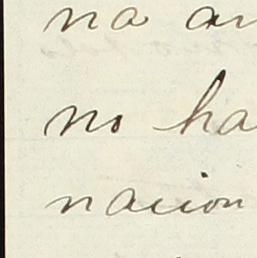 na an
no ha
nacion